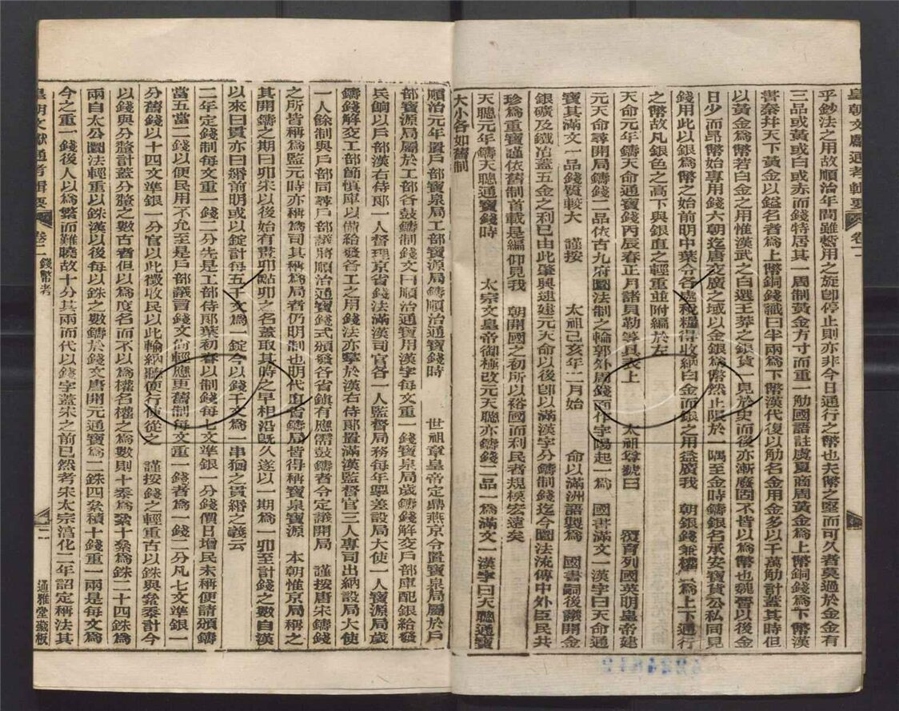 皇朝文獻通考輯要 卷二
乎鈔法之用故順治年間雖暫用之旋即停止則亦非今日通行之幣也夫幣之堅而可久者莫過於金金有
三品或黃或白或赤而錢特居其一周制黃金方寸而重一觔國語註虞夏商周黃金為上幣銅錢為下幣漢
書秦幷天下黃金以鎰名者為上幣銅錢識曰半兩為下幣漢代復以觔名金用金多以千萬觔計蓋其時但
以黃金為幣若白金之用惟漢武之白選王莽之銀貨一見於史而後亦漸廢固不皆以為幣也魏晉以後金
日少而帛幣始專用錢六朝迄唐交廣之域以金銀為幣然止限於一隅至金時鑄銀名承安寶貨公私同見
錢用此以銀為幣之始前明中葉令各處稅糧得收納白金而銀之用益廣我 朝銀錢兼權實為上下通行
之幣故凡銀色之高下與銀直之輕重並附編於左
天命元年鑄天命通寶錢丙辰春正月諸貝勒等具表上 太祖尊號曰 覆育列國英明皇帝建
元天命遂開局鑄錢二品依古九府圜法制之輪郭外周錢面作字陽起一為 國書滿文一漢字曰天命通
寶其滿文一品錢質較大 謹按 太祖己亥年二月始 命以滿洲語製為 國書嗣後議開金
銀礦及鐵冶蓋五金之利已由此肇興逮建元天命以後即以滿漢字分鑄制錢迄今圜法流傳中外臣民共
珍為重寶謹依舊制首載是編仰見我 朝開國之初所以裕國而利民者規模宏遠矣
天聰元年鑄天聰通寶錢時 太宗文皇帝御極改元天聰亦鑄錢二品一為滿文一漢字曰天聰通寶
大小各如舊制
順治元年置戶部寶泉局工部寶源局鑄順治通寶錢時 世祖章皇帝定鼎燕京令置寶泉局屬於戶
部寶源局屬於工部各鼓鑄制錢文曰順治通寶用漢字每文重一錢寶泉局歲鑄錢解交戶部庫配銀給發
兵餉以戶部漢右侍郎一人督理京省錢法滿漢司官各一人監督局務每年遞差設局大使一人寶源局歲
鑄錢解交工部節愼庫以備給發各工之用錢法亦掌於漢右侍郎置滿漢監督官三人專司出納設局大使
一人餘制與戶部同尋戶部議將順治通寶錢式頒發各省鎮有應需鼓鑄者令定議開局 謹按唐宋鑄錢
之所皆稱為監元時亦稱為司其稱為局者仍明制也明代直省鑄局皆得稱寶泉寶源 本朝惟京局稱之
其開鑄之期曰卯宋以後始有畫卯點卯之名蓋取其時之早相沿既久遂以一期為一卯至計錢之數自漢
以來曰貫亦曰緡前明或以錠計每五千文為一錠今以錢千文為一串猶之貫緡之義云
二年定錢制每文重一錢二分先是工部侍郎葉初春以制錢每七文準銀一分錢價日增民未稱便請頒鑄
當五當二錢以便民用不允至是戶部議言錢文尚輕應更舊制每文重一錢者為一錢二分凡七文準銀一
分舊錢以十四文準銀一分官以此徵收民以此輸納聽便行使從之 謹按錢之輕重古以銖與絫黍計今
以錢與分釐計蓋分釐之數古者但以為度名而不以為權名權之為數則十黍為絫十絫為銖二十四銖為
兩自太公圜法輕重以銖漢以後每以銖之數鑄於錢文唐開元通寶為二銖四絫積十錢重一兩是每文為
今之重一錢後人以為繁而難曉故十分其兩而代以錢字蓋宋之前已然考宋太宗淳化二年詔定稱法其
皇朝文獻通考輯要 卷二 錢幣考 二 通雅堂藏板